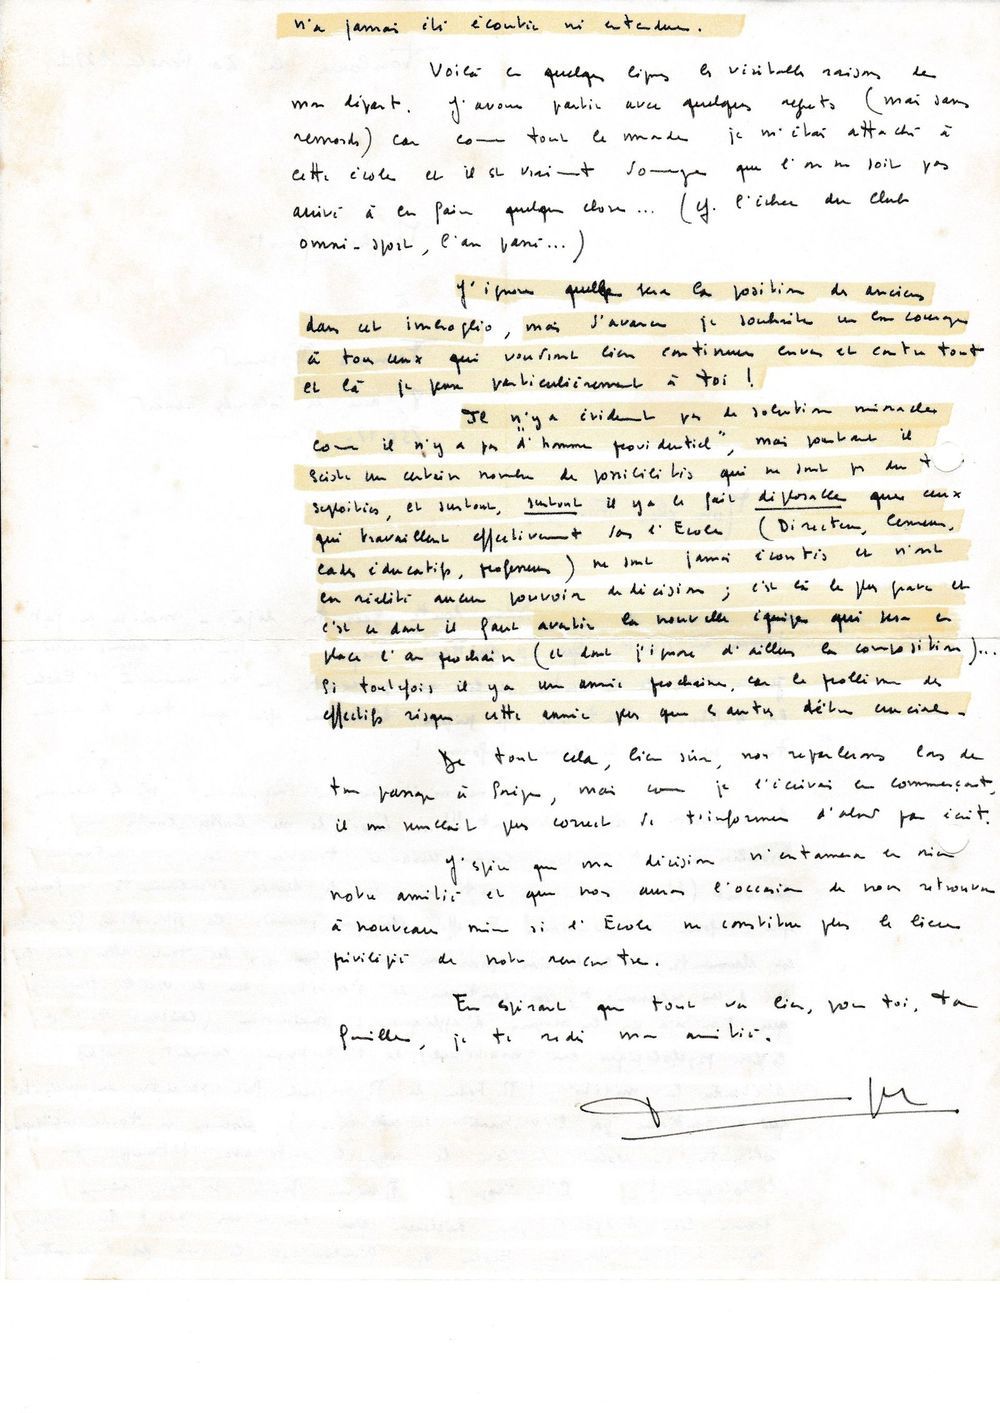 n'a jamais été écoutée ni entendue.
Voilà en quelques lignes les véritables raisons de
mon départ. J'avoue partir avec quelques regrets (mais sans
remords) car comme tout le monde je m'étais attaché à
cette école et il est vraiment dommage que l'on ne soit pas
arrivé à en faire quelque chose... (cf. l'échec du Club
omni-sport, l'an passé...)
J'ignore quelle sera la position des anciens
dans cet imbroglio, mais d'avance je souhaite un bon courage
à tous ceux qui voudront bien continuer envers et contre tout
et là je pense particulièrement à toi !
Il n'y a évidemment pas de solution miracle
comme il n'y a pas "d'homme providentiel", mais pourtant il
existe un certain nombre de possibilités qui ne sont pas du tout
exploitées, et surtout, surtout il y a le fait déplorable que ceux
qui travaillent effectivement dans l'Ecole (Directeur, Censeur,
cadres éducatifs, professeurs) ne sont jamais écoutés et n'ont
en réalité aucun pouvoir de décision ; c'est là le plus grave et
c'est ce dont il faut avertir la nouvelle équipe qui sera en
place l'an prochain (et dont j'ignore d'ailleurs la composition)...
Si toutefois il y a une année prochaine, car le problème des
effectifs risque cette année plus que les autres d'être crucial.
De tout cela, bien sûr, nous reparlerons lors de
ton passage à mais comme je l'écrivais en commençant,
il me semblait plus correct de t'informer d'abord par écrit.
J'espère que ma décision n'entamera en rien
notre amitié et que nous aurons l'occasion de nous retrouver
à nouveau même si l'Ecole ne constitue plus le lieu
privilégié de notre rencontre.
En espérant que tout va bien, pour toi, ta
famille, je te redis mon amitié.